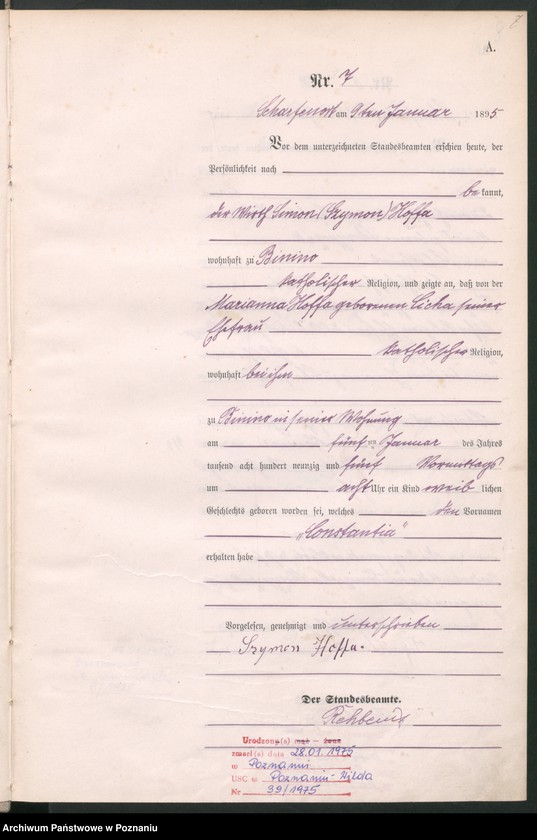 A.
Nr. 7
Scharfenort am 9ten Januar 1895
Vor dem unterzeichneten Standesbeamten erschien heute, der
Persönlichkeit nach
bekannt,
der Wirth Simon (Szymon) Hoffa
wohnhaft zu Binino
katholischer Religion, und zeigte an, daß von der
Marianna Hoffa geborenen Licka seiner
Ehefrau
katholischer Religion,
wohnhaft bei ihm
zu Binino in seiner Wohnung
am fünften Januar des Jahres
tausend acht hundert neunzig und fünf Vormittags
um acht Uhr ein Kind weiblichen
Geschlechts geboren worden sei, welches den Vornamen
„Constantia“
erhalten habe
Vorgelesen, genehmigt und unterschrieben
Szymon Hoffa.
Der Standesbeamte.
Urodzony(a) mąż – żona
zmarł(a) data 28.01.1975
w Poznaniu
USC w Poznaniu-Wilda
Nr 39/1975
Archiwum Państwowe w Poznaniu